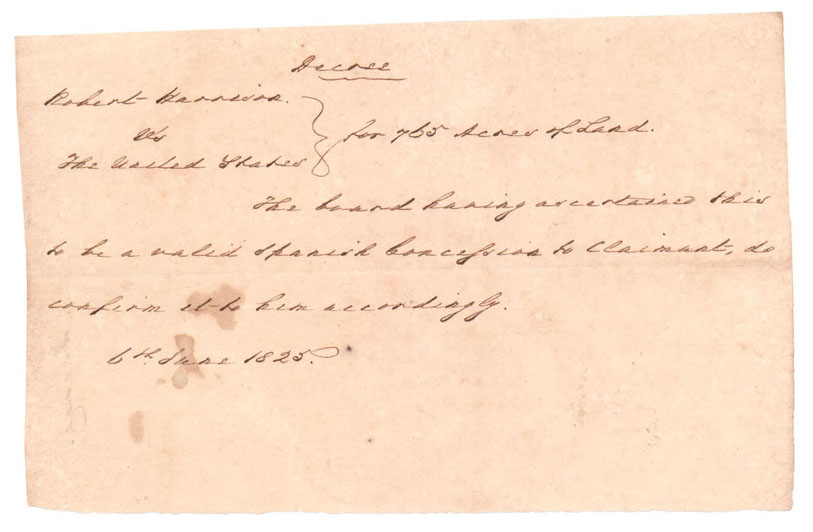 Decree
Robert Harrison.
Vs
The United States
for 765 Acres of Land.
The board having ascertained this
to be a valid Spanish Concession to Claimant, do
confirm it to him accordingly.
6th. June 1825.